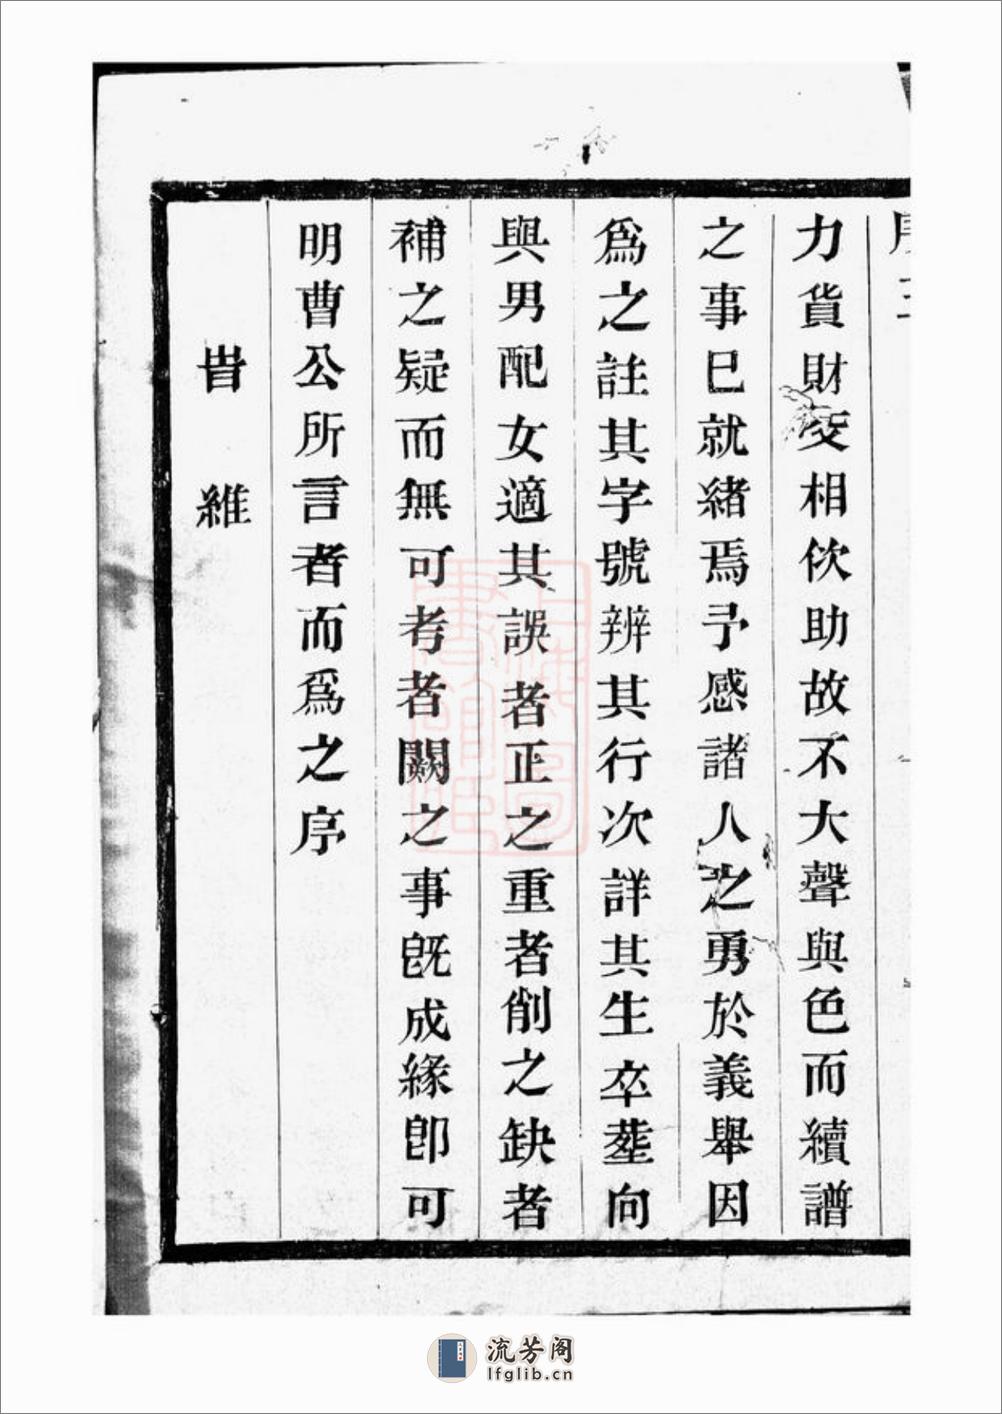 力貨財交相佽助故不大聲與色而續譜
之事已就緒焉予感諸人之勇於義舉因
爲之註其字號辨其行次詳其生卒塟向
與男配女適其誤者正之重者削之缺者
補之疑而無可考者闕之事旣成緣卽可
明曹公所言者而爲之序
旹維
流芳阁
lfglib.cn